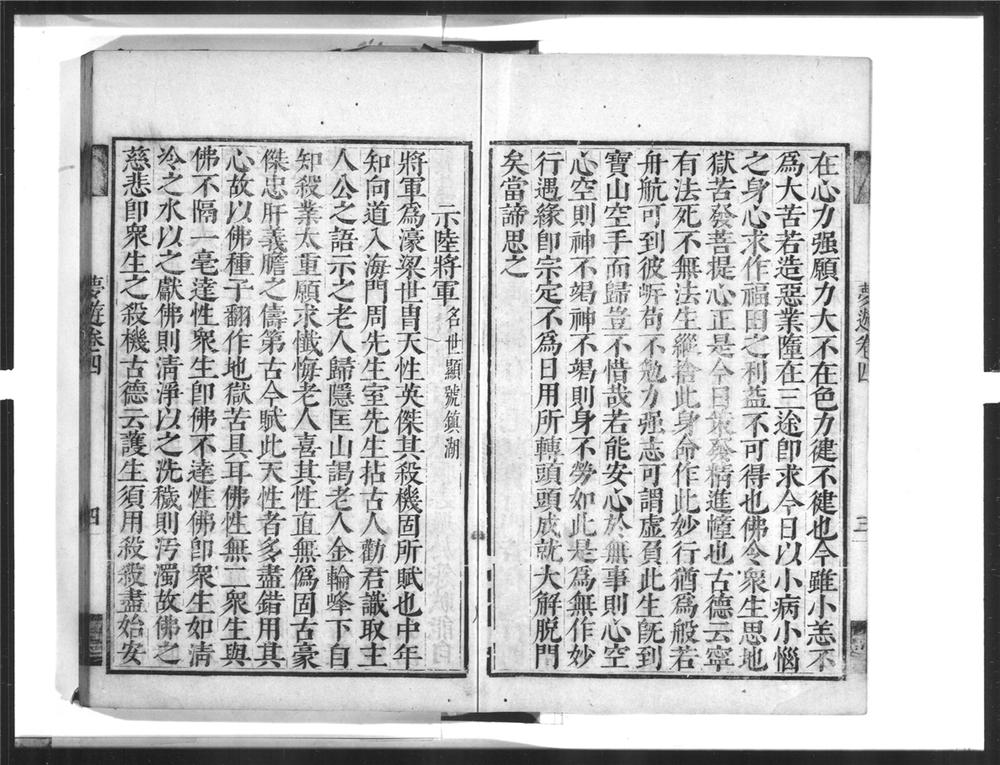 在心力强願力大不在色力健不健也今雖小恙不
為大苦若造惡業墮在三途卽求今日以小病小惱
之身心求作福田之利益不可得也佛令衆生思地
獄苦發菩提心正是今日策發精進幢也古德云寧
有法死不無法生縱捨此身命作此妙行猶為般若
舟航可到彼岸苟不勉力强志可謂虛負此生旣到
寶山空手而歸豈不惜哉若能安心於無事則心空
心空則神不竭神不竭則身不勞如此是為無作妙
行遇緣卽宗定不為日用所轉頭頭成就大解脫門
矣當諦思之
夢遊卷四
三
示陸將軍名世顯號鎮湖
將軍為濠梁世胄天性英傑其殺機固所賦也中年
知向道入海門周先生室先生拈古人勸君識取主
人公之語示之老人歸隱匡山謁老人金輪峰下自
知殺業太重願求懺悔老人喜其性直無偽固古豪
傑忠肝義膽之儔第古今賦此天性者多盡錯用其
心故以佛種子翻作地獄苦具耳佛性無二衆生與
佛不隔一毫達性衆生卽佛不達性佛卽衆生如清
冷之水以之獻佛則清淨以之洗穢則汚濁故佛之
慈悲卽衆生之殺機古德云護生須用殺殺盡始安
夢遊卷四
四